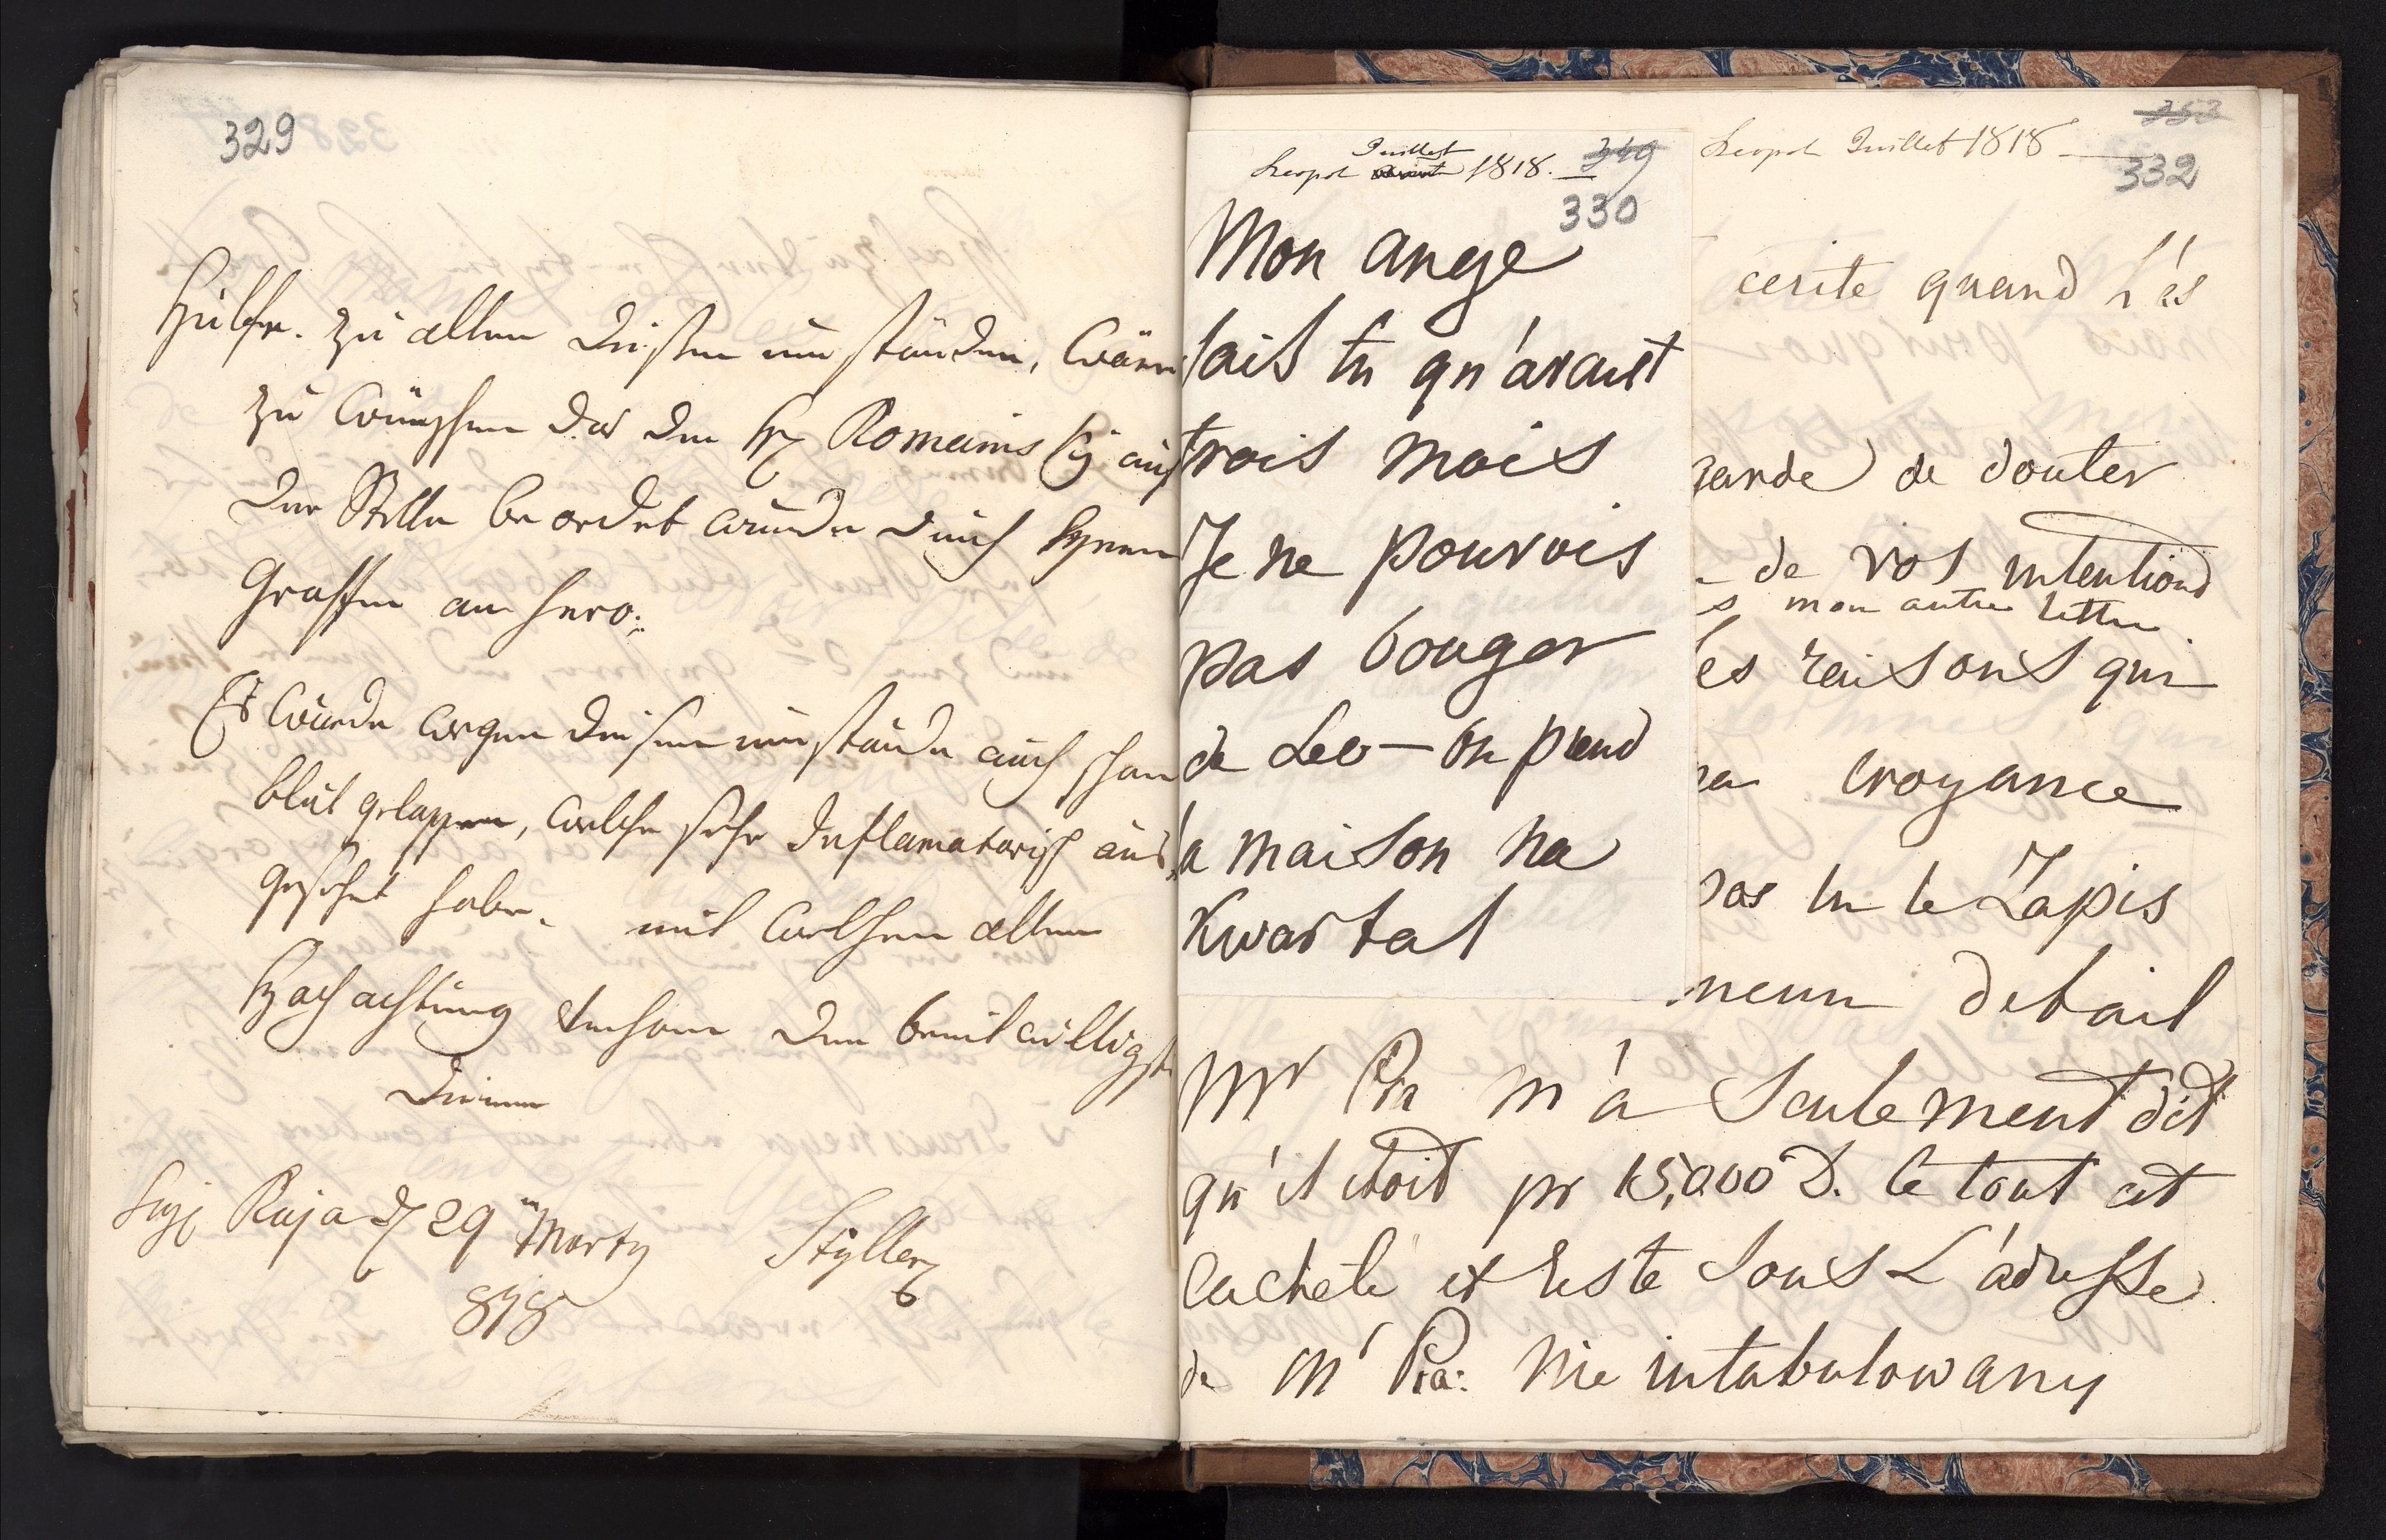 329
Hülfe. zu allen diesen umständen, wäre
zu wünschen das der H Romains sich auf
der Stelle beordet wurde durch Hernn
Graffen an hero.
Es wurde wegen diesen umstände auch schon
blut gelassen, welche sehr Inflamatorisch aus
gesehet habe. mit welchen allen
Hochachtung der bereitwilligste
Diener
Sigl Ruja d 29 Marty
818
Styller
Leopol Juillet 1818. 349
330
Mon ange
sais tu qu'avant
trois mois
Je ne pouvois
pas bouger
de Leo — on prend
la maison na
Kwartal
Leopol Juillet 1818 353
332
cerite quand h'es
garde de douter
de vos intentions
s mon autre lettre
les raisons qui
croyance
pas lu le Zapis
detail
Mr Pia m'a seulement dit
qu'il étoit pr 15,000 D. le tout est
cacheté et reste sous L'adresse
de Mr Pia: Nie intabulowany